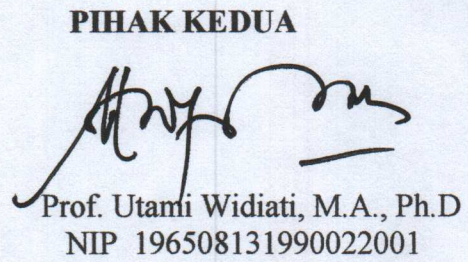 PIHAK KEDUA
Prof. Utami Widiati, M.A., Ph.D
NIP 196508131990022001